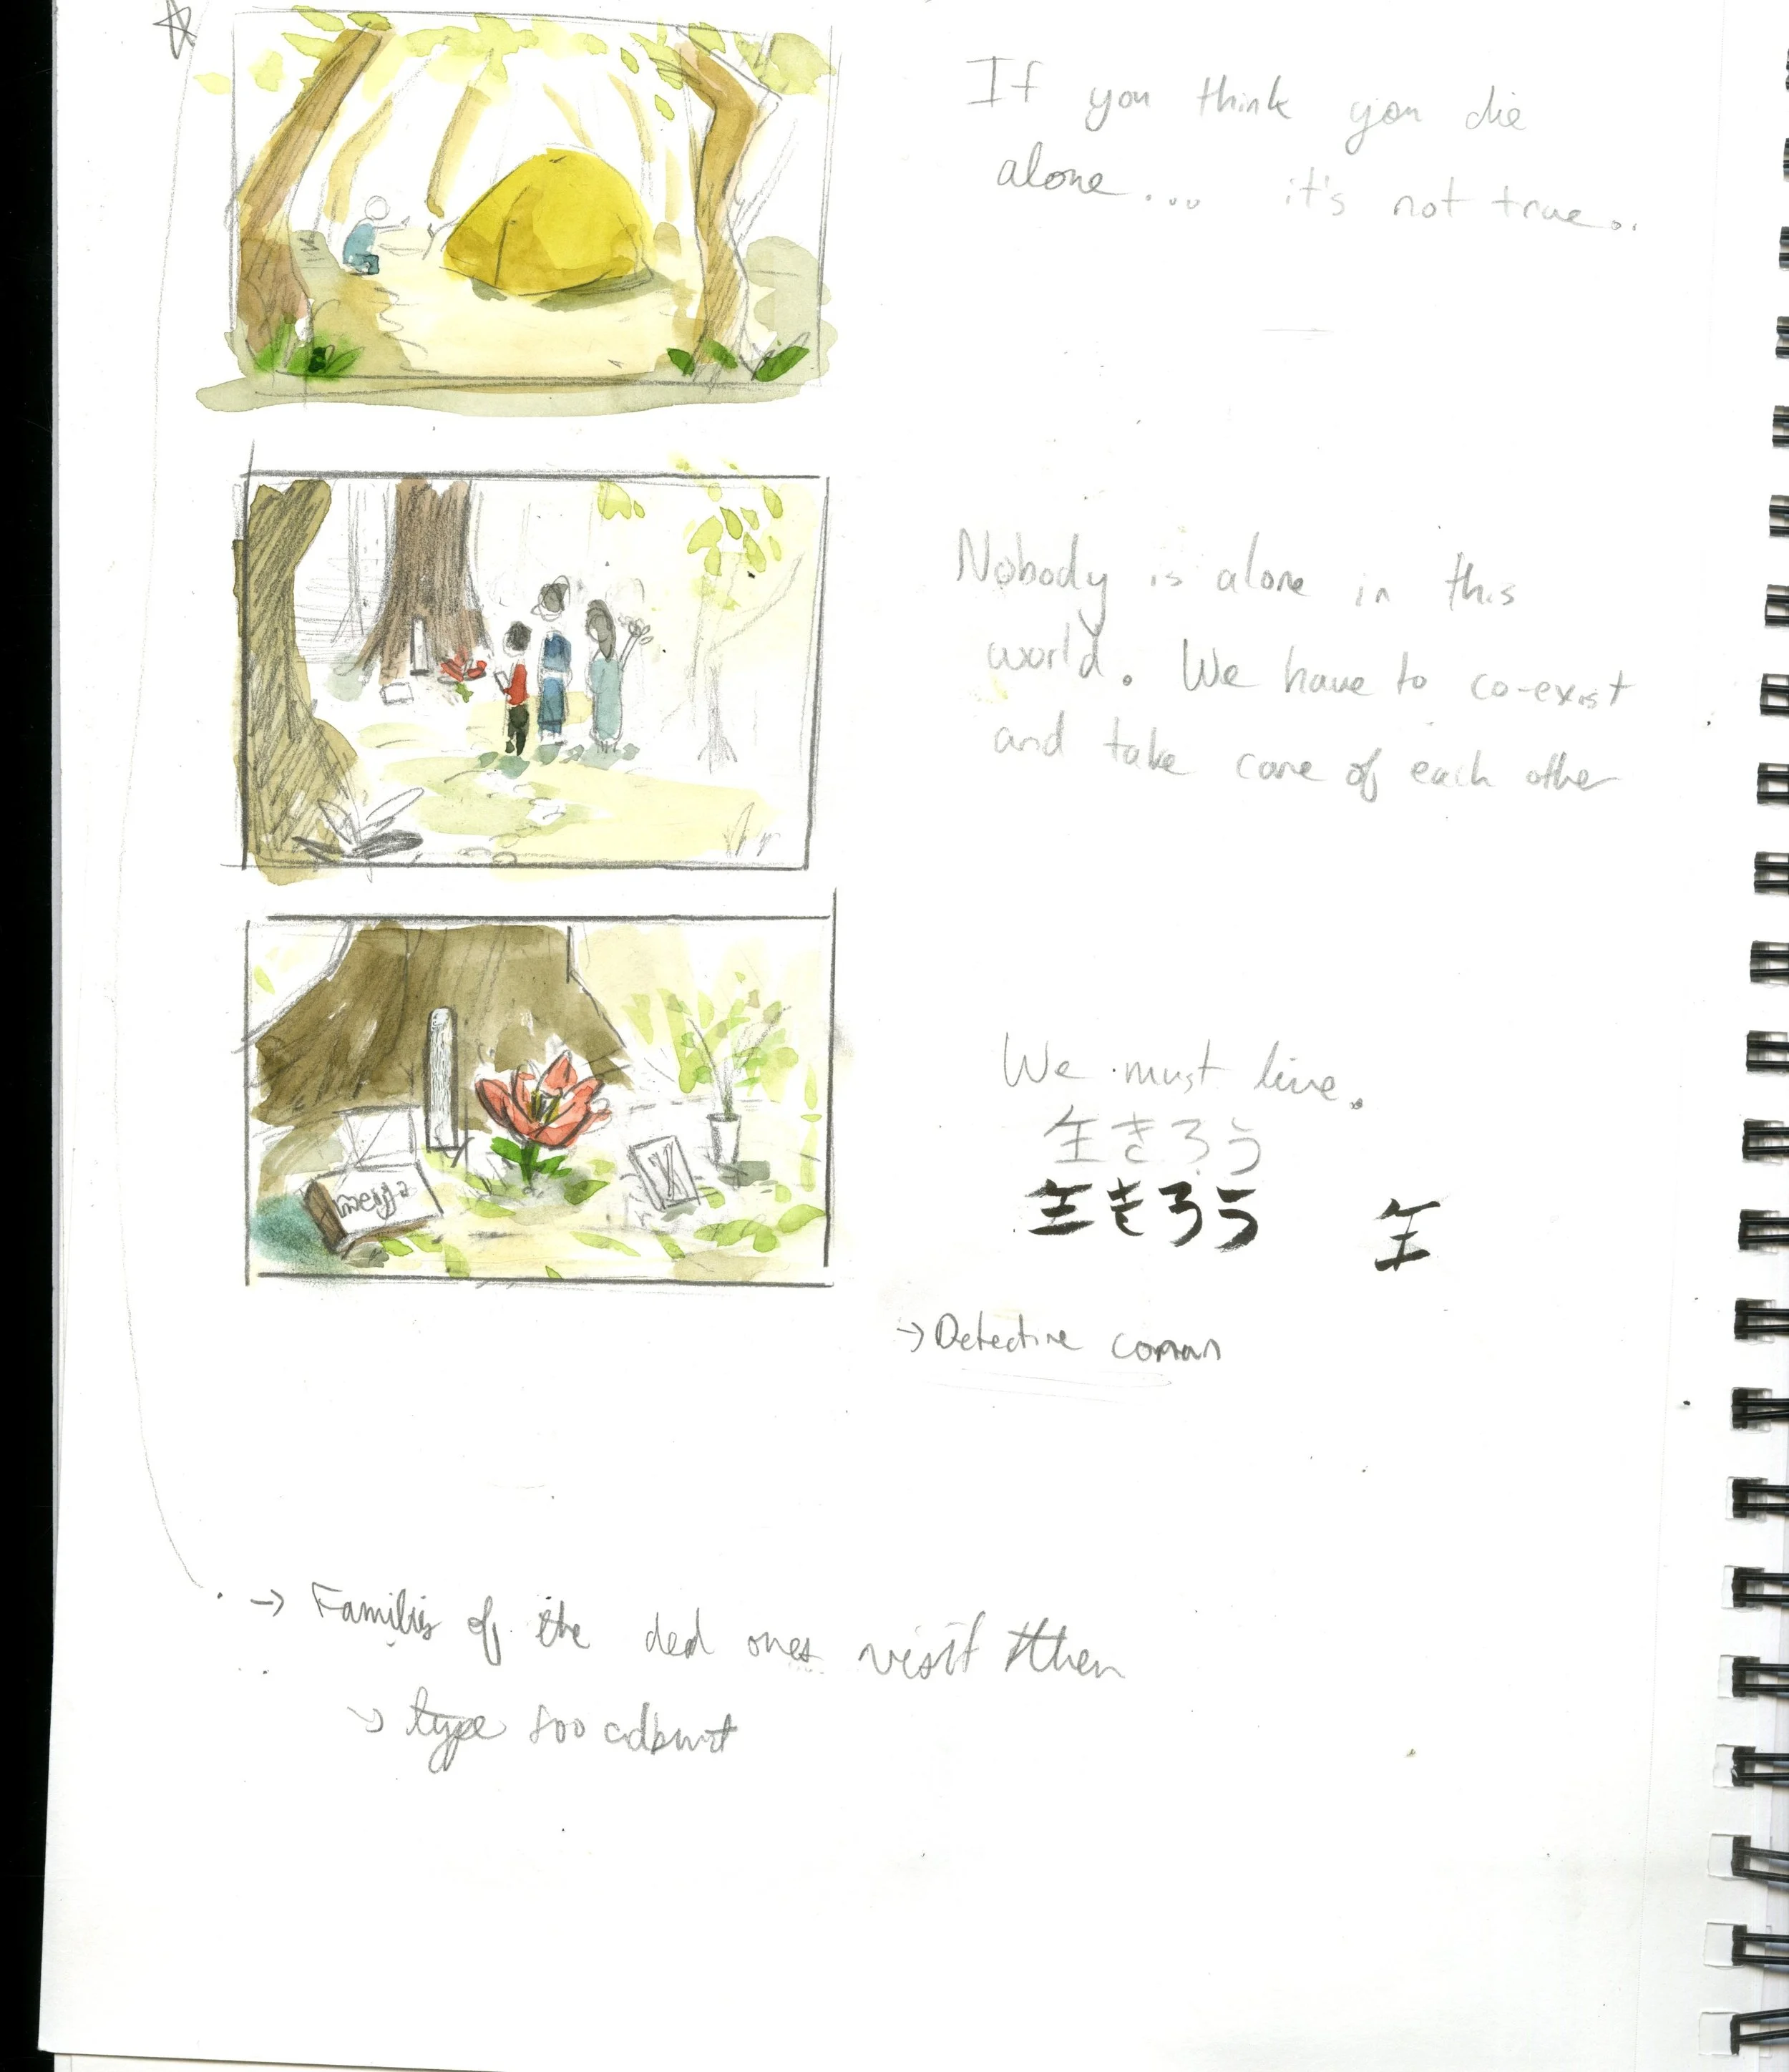 If you think you die
alone... it's not true..
Nobody is alone in this
world. We have to co-exist
and take care of each other
We must live.
生きろう
生きろう 生
→ Detective conan
→ Families of the ded ones visit then
→ type